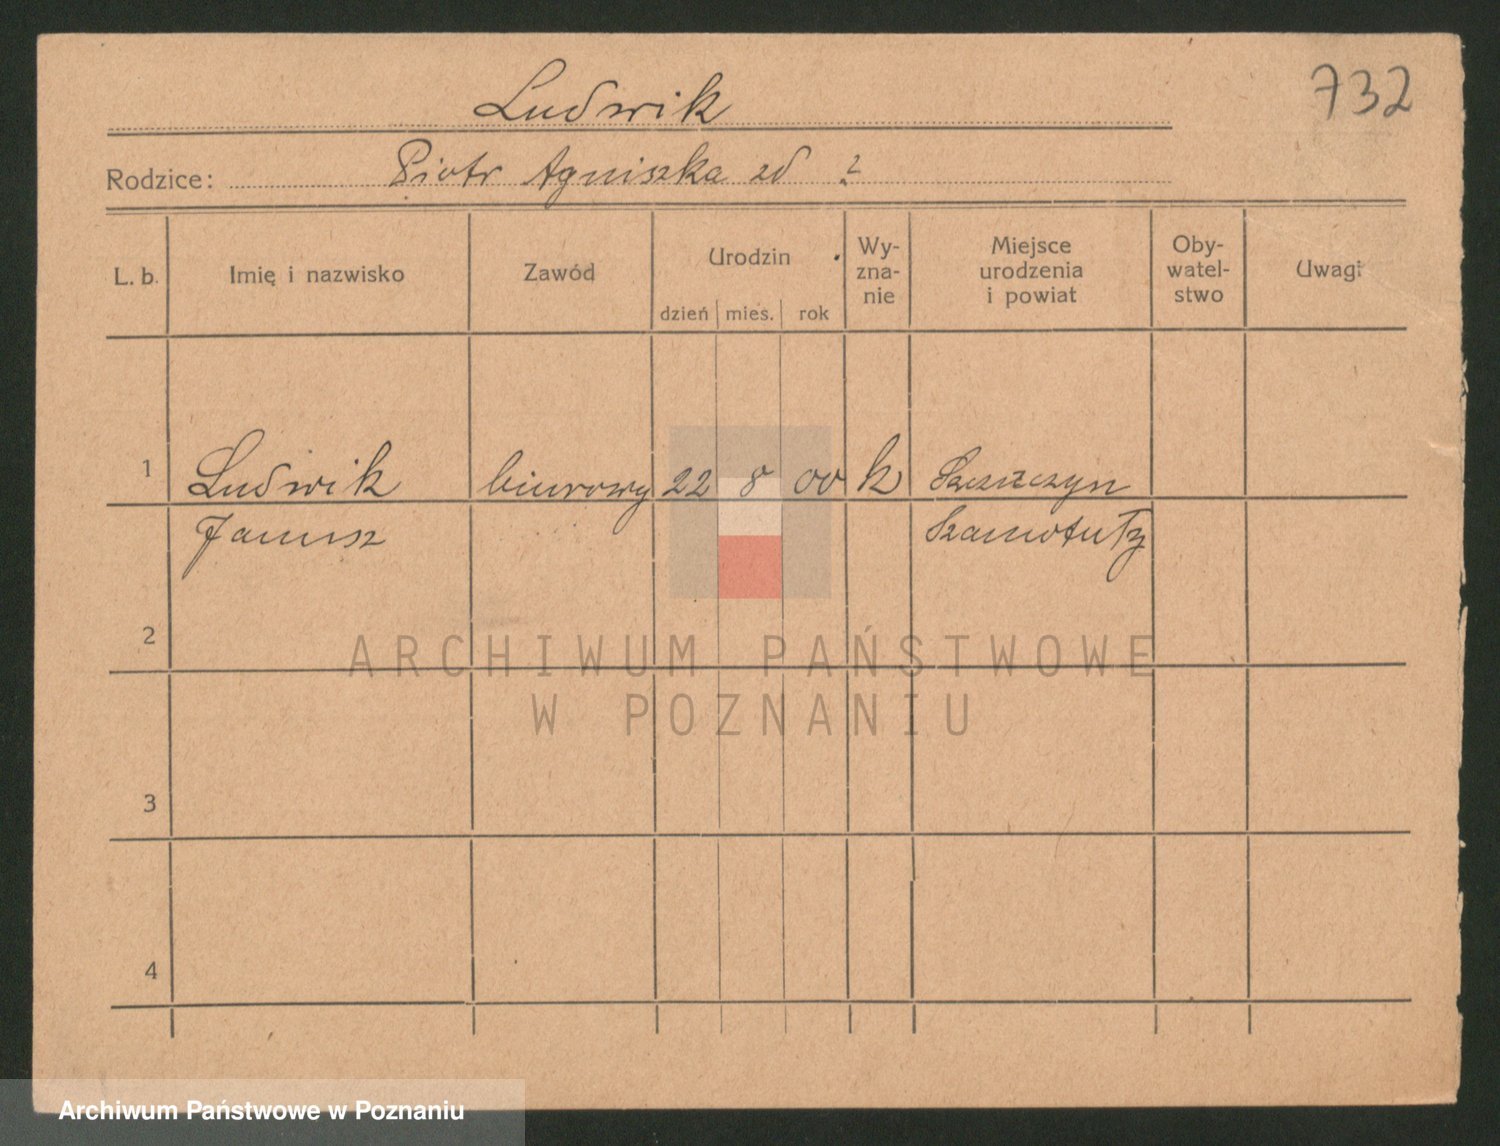 732
Ludwik
Rodzice: Piotr Agniszka zd ?
L. b. Imię i nazwisko Zawód Urodzin dzień mies. rok Wy-zna-nie Miejsce urodzenia i powiat Oby-watel-stwo Uwagi
1 Ludwik biurowy 22 8 00 k
Janusz Szamotuły
2
ARCHIWUM PAŃSTWOWE
W POZNANIU
3
4
Archiwum Państwowe w Poznaniu